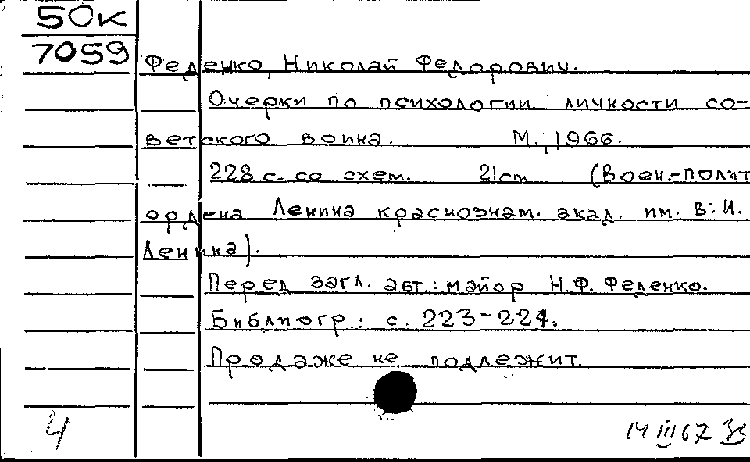 50к
7059
Феденко, Николай Федорович.
Очерки по психологии личности со-
ветского воина. М., 1966.
228 с. со схем. 21см (Воен-полит
ордена Ленина краснознам. акад. им. В.И.
Ленина).
Перед загл. авт.: майор Н.Ф. Феденко.
Библиогр: с. 223-224.
Продаже не подлежит.
4
14 III 67